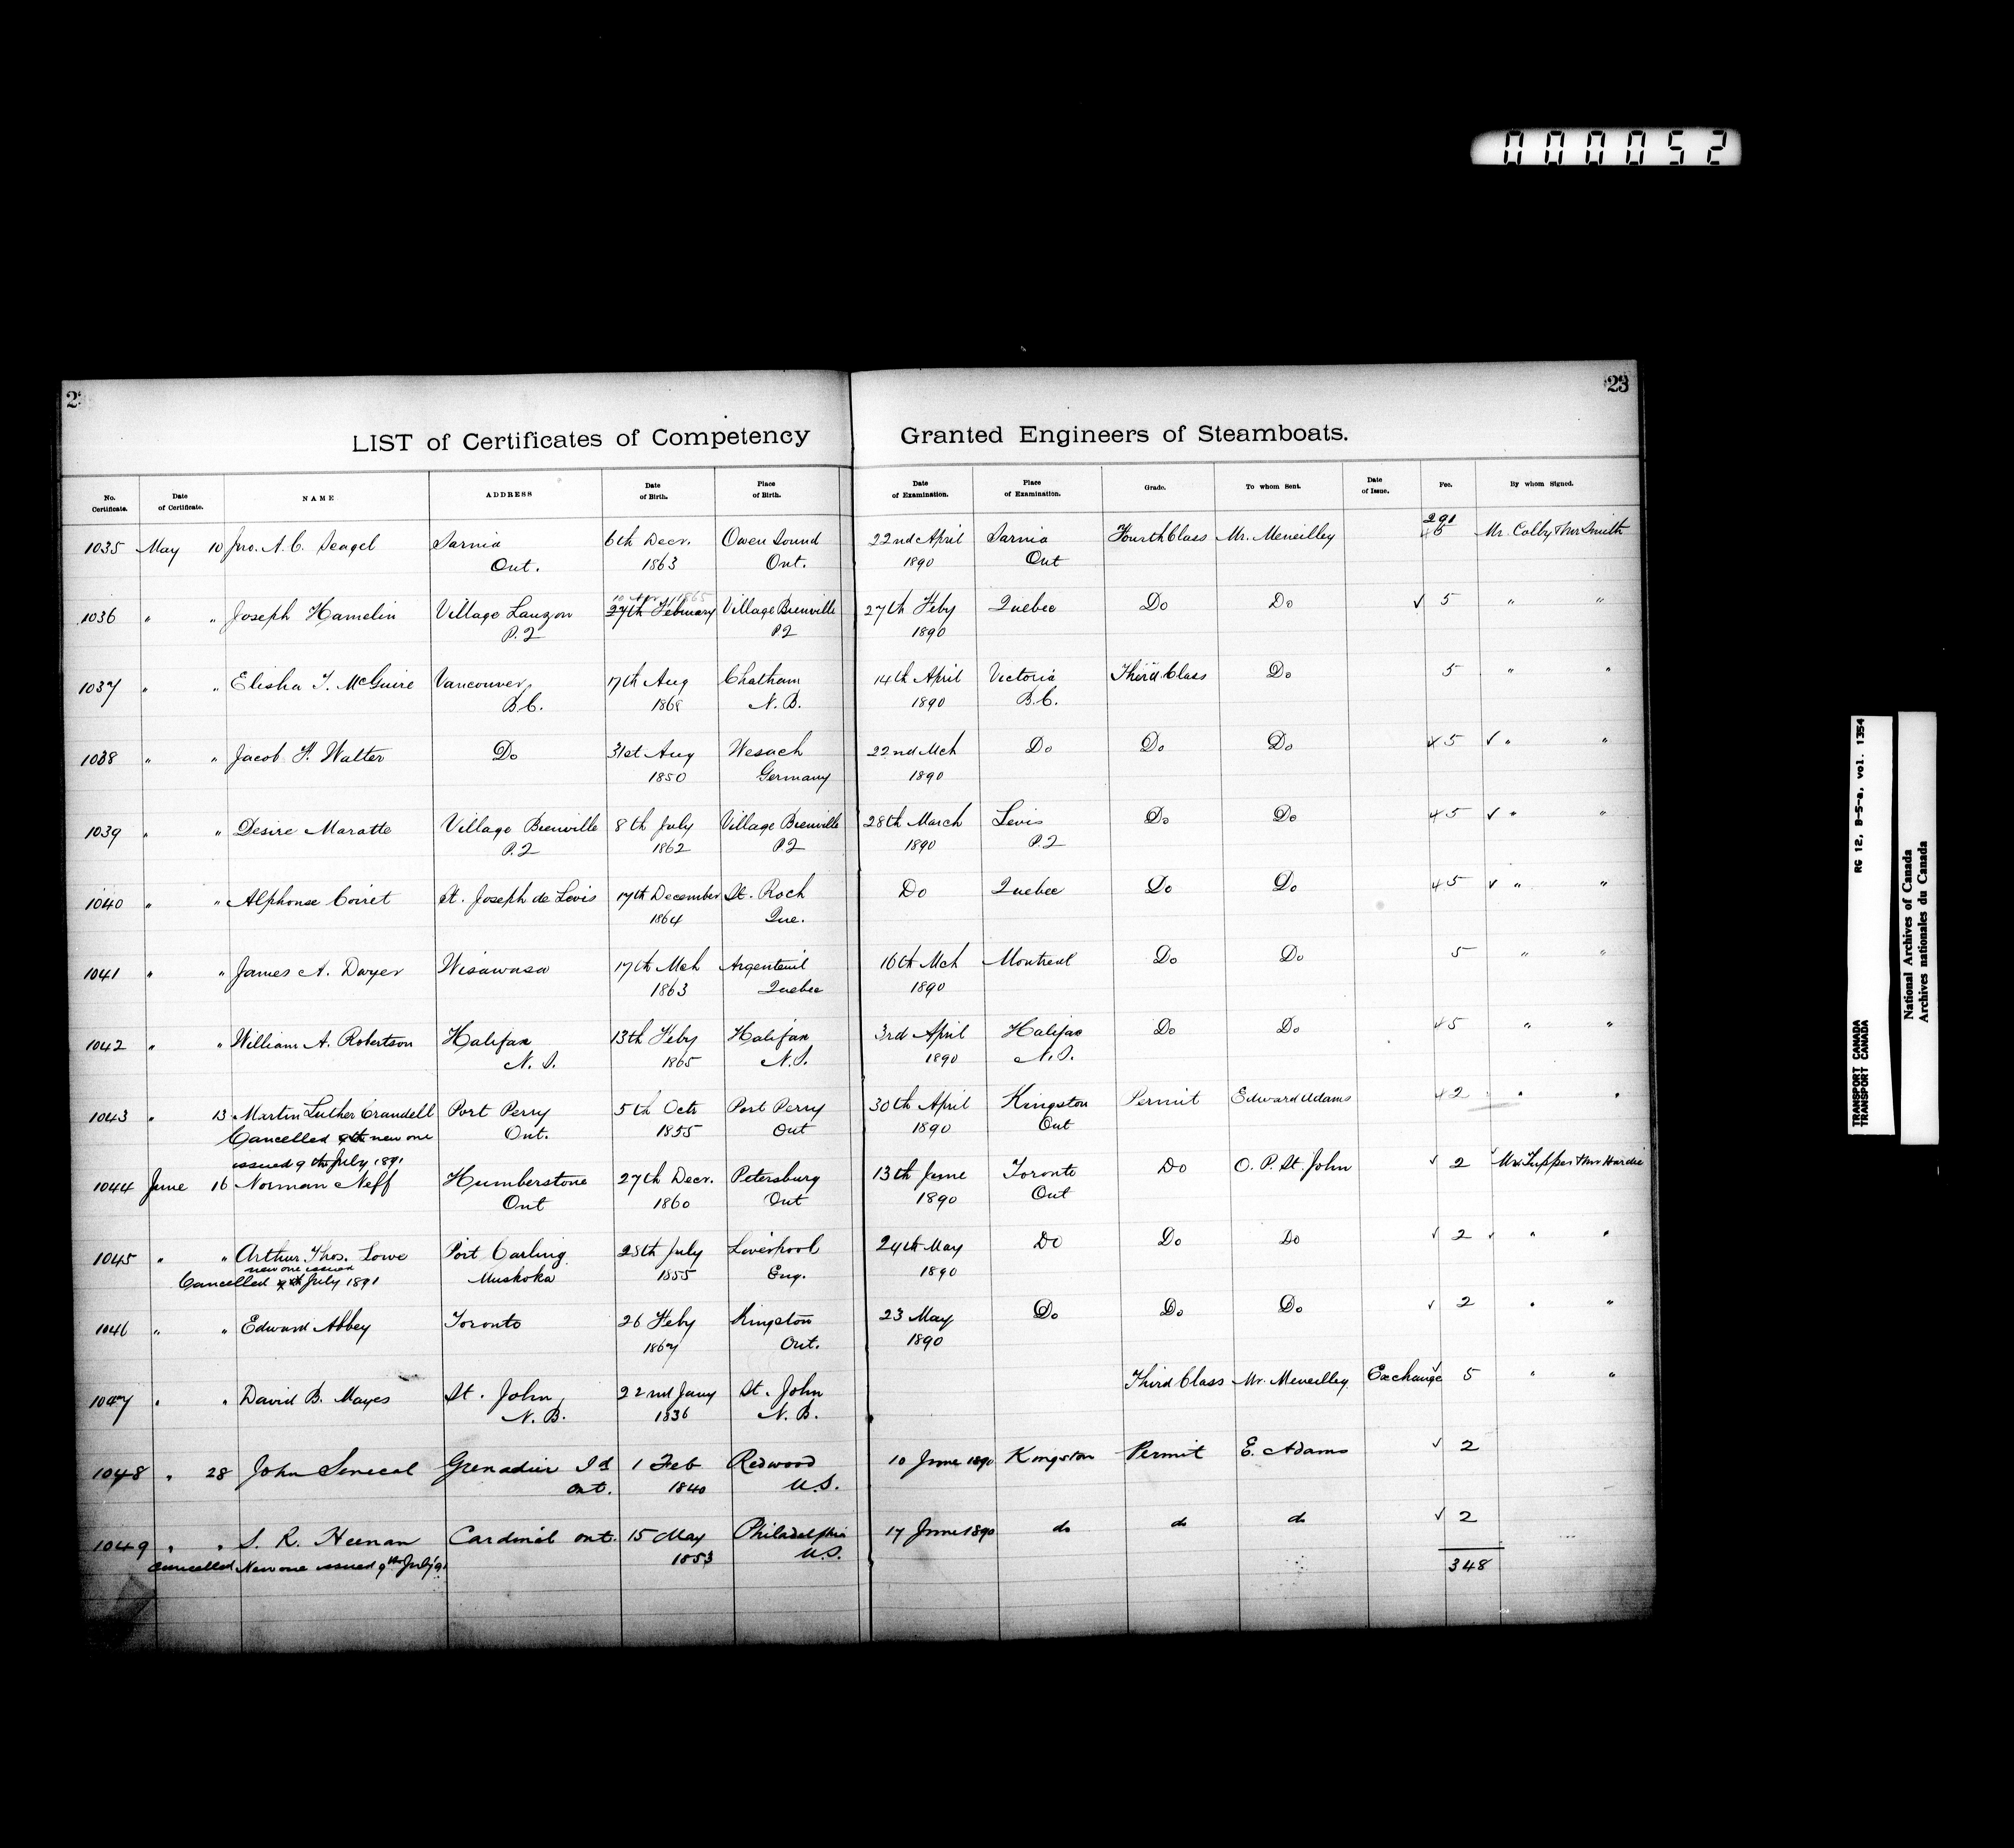 000052
23
LIST of Certificates of Competency Granted Engineers of Steamboats.
No. Certificate. Date of Certificate. NAME ADDRESS Date of Birth. Place of Birth. Date of Examination. Place of Examination. Grade. To whom Sent. Date of Issue. Fee. By whom Signed.
291
1035 May 10 Jno. A. C. Seagel Sarnia 6th Decr. Owen Sound 22nd April Sarnia Fourth Class Mr. Meneilley 5 Mr. Colby & Mr Smith
Ont. 1863 Ont. 1890 Ont
1036 " " Joseph Hamelin Village Lauzon 27th February Village Bienville 27th Feby Quebec Do Do √ 5 " "
P.Q P.Q 1890
1037 " " Elisha T. McGuire Vancouver, 17th Aug Chatham 14th April Victoria Third Class Do 5 " "
B.C. 1868 N.B. 1890 B.C.
1038 " " Jacob F. Walter Do 31st Aug Wesach 22nd Mch Do Do Do 5 √ " "
1850 Germany 1890
1039 " " Desire Maratte Village Bienville 8th July Village Bienville 28th March Levis Do Do 5 √ " "
P.Q 1862 P.Q 1890 P.Q
1040 " " Alphonse Coiret St. Joseph de Levis 17th December St. Roch Do Quebec Do Do 5 √ " "
1864 Que.
1041 " " James A. Dwyer Wisawasa 17th Mch Argenteuil 16th Mch Montreal Do Do 5 " "
1863 Quebec 1890
1042 " " William A. Robertson Halifax 13th Feby Halifax 3rd April Halifax Do Do 5 " "
N.S. 1865 N.S. 1890 N.S.
1043 " 13 Martin Luther Crandell Port Perry 5th Octr Port Perry 30th April Kingston Permit Edward Adams 2 " "
Cancelled new one Ont. 1855 Ont 1890 Ont
issued 9th July 1891
1044 June 16 Norman Neff Humberstone 27th Decr. Petersburg 13th June Toronto Do O. P. St. John √ 2 Mr Tupper & Mr Hardie
Ont 1860 Ont 1890 Ont
1045 " " Arthur Thos. Lowe Port Carling 25th July Liverpool 24th May Do Do Do √ 2 √ " "
new one issued
Cancelled 9th July 1891 Muskoka 1855 Eng. 1890
1046 " " Edward Abbey Toronto 26 Feby Kingston 23 May Do Do Do √ 2 " "
1867 Ont. 1890
1047 " " David B. Mayes St. John, 22nd Jany St. John Third Class Mr. Meneilley Exchange √ 5 " "
N.B. 1836 N.B.
1048 " 28 John Senecal Grenadier Id 1 Feb Redwood 10 June 1890 Kingston Permit E. Adams √ 2
Ont. 1840 U.S.
1049 " " S. R. Heenan Cardinal Ont. 15 May Philadelphia 17 June 1890 do do do √ 2
Cancelled New one issued 9th July 91 1853 U.S.
348
RG 12, B-5-a, vol. 1354
TRANSPORT CANADA
TRANSPORT CANADA
National Archives of Canada
Archives nationales du Canada